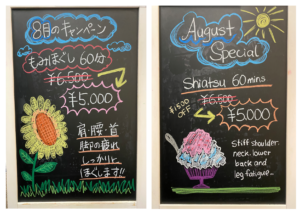 8月のキャンペーン
もみほぐし 60分
¥6.500
¥5.000
肩・腰・首
脚の疲れ
しっかりと
ほぐします!!
August
Special
Shiatsu 60mins
¥1500
OFF
¥6.500
¥5.000
Stiff shoulder
neck, lower
back and
leg fatigue...